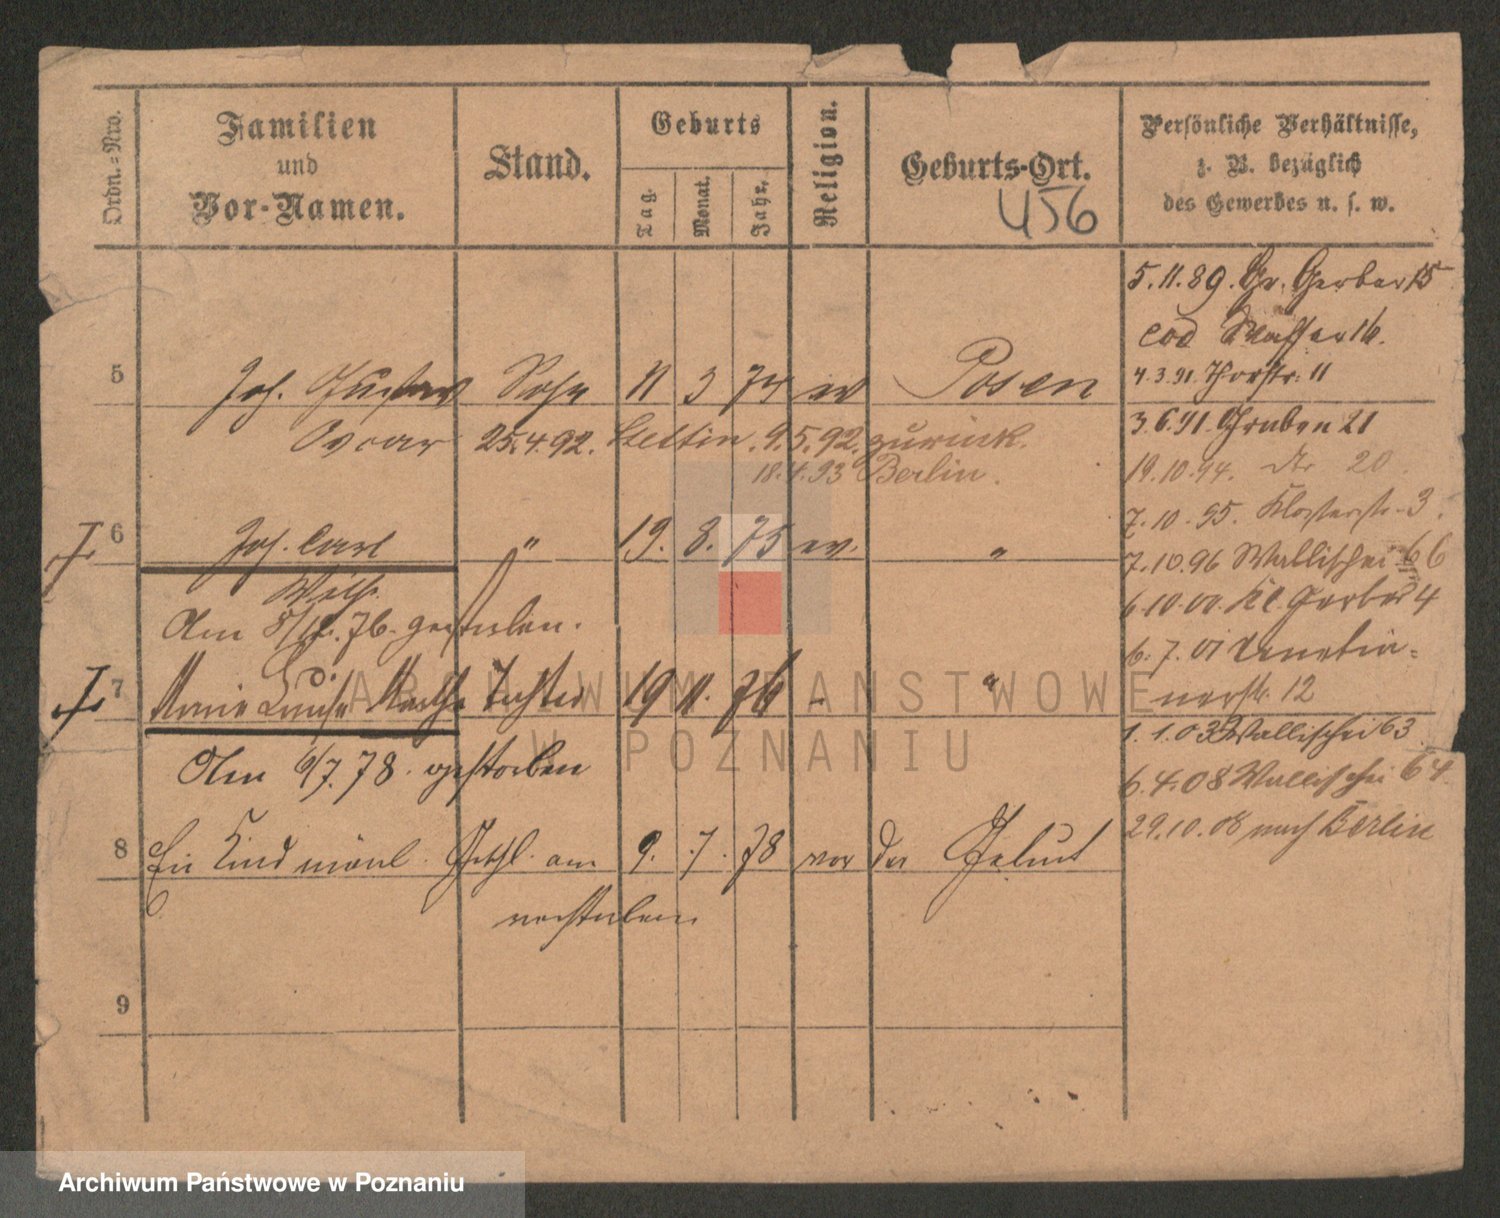 Ordn.=Nro.
Familien
und
Vor-Namen.
Stand.
Geburts
Tag.
Monat.
Jahr.
Religion.
Geburts-Ort.
456
Persönliche Verhältnisse,
z. B. bezüglich
des Gewerbes u. s. w.
5 Joh. Gustav Sohn 11 3 74 ev Posen
Oscar 25.4.92. Stettin. 9.5.92. zurück.
18.4.93 Berlin.
6 Joh. Carl " 19. 8. 75 ev. "
Wilh.
Am 8/12. 76. gestorben.
7 Marie Luise Martha Tochter 19 11. 76 "
Am 6/7. 78. gestorben
8 Ein Kind männl. Geschl. am 9. 7. 78 vor der Geburt
verstorben
9
5.11.89. Gr. Gerber 15
eod Wasser 16.
4.3.91. Thorstr. 11
3.6.91. Graben 21
19.10.94. 20.
7.10.95. Klosterstr. 3.
7.10.96 Wallischei 66
6.10.00. Kl. Gerber 4
6.7.01 Venetia=
nerstr. 12
1.1.03 Wallischei 63
6.4.08 Wallischei 64.
29.10.08 nach Berlin
ARCHIWUM PAŃSTWOWE
W POZNANIU
Archiwum Państwowe w Poznaniu